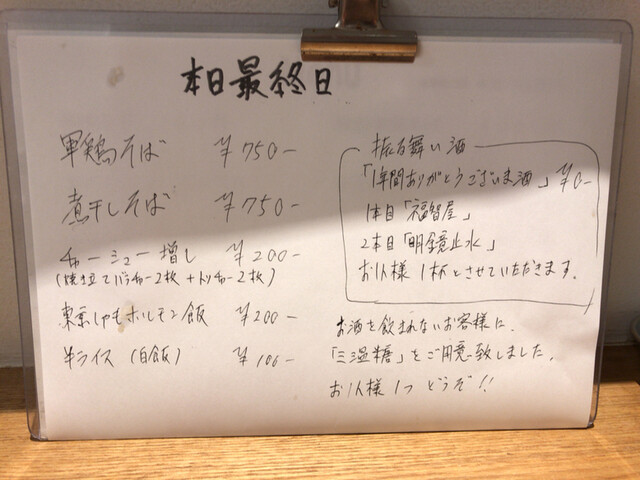 本日最終日
軍鶏そば ¥750-
煮干しそば ¥750-
チャーシュー増し ¥200-
(焼き立てバラチャー2枚+トリチャー2枚)
東京しゃもホルモン飯 ¥200-
半ライス(白飯) ¥100-
振る舞い酒
「1年間ありがとうございま酒」¥0-
1本目「福智屋」
2本目「明鏡止水」
お1人様1杯とさせていただきます。
お酒を飲まれないお客様に、
「三温糖」をご用意致しました。
お1人様1つどうぞ!!